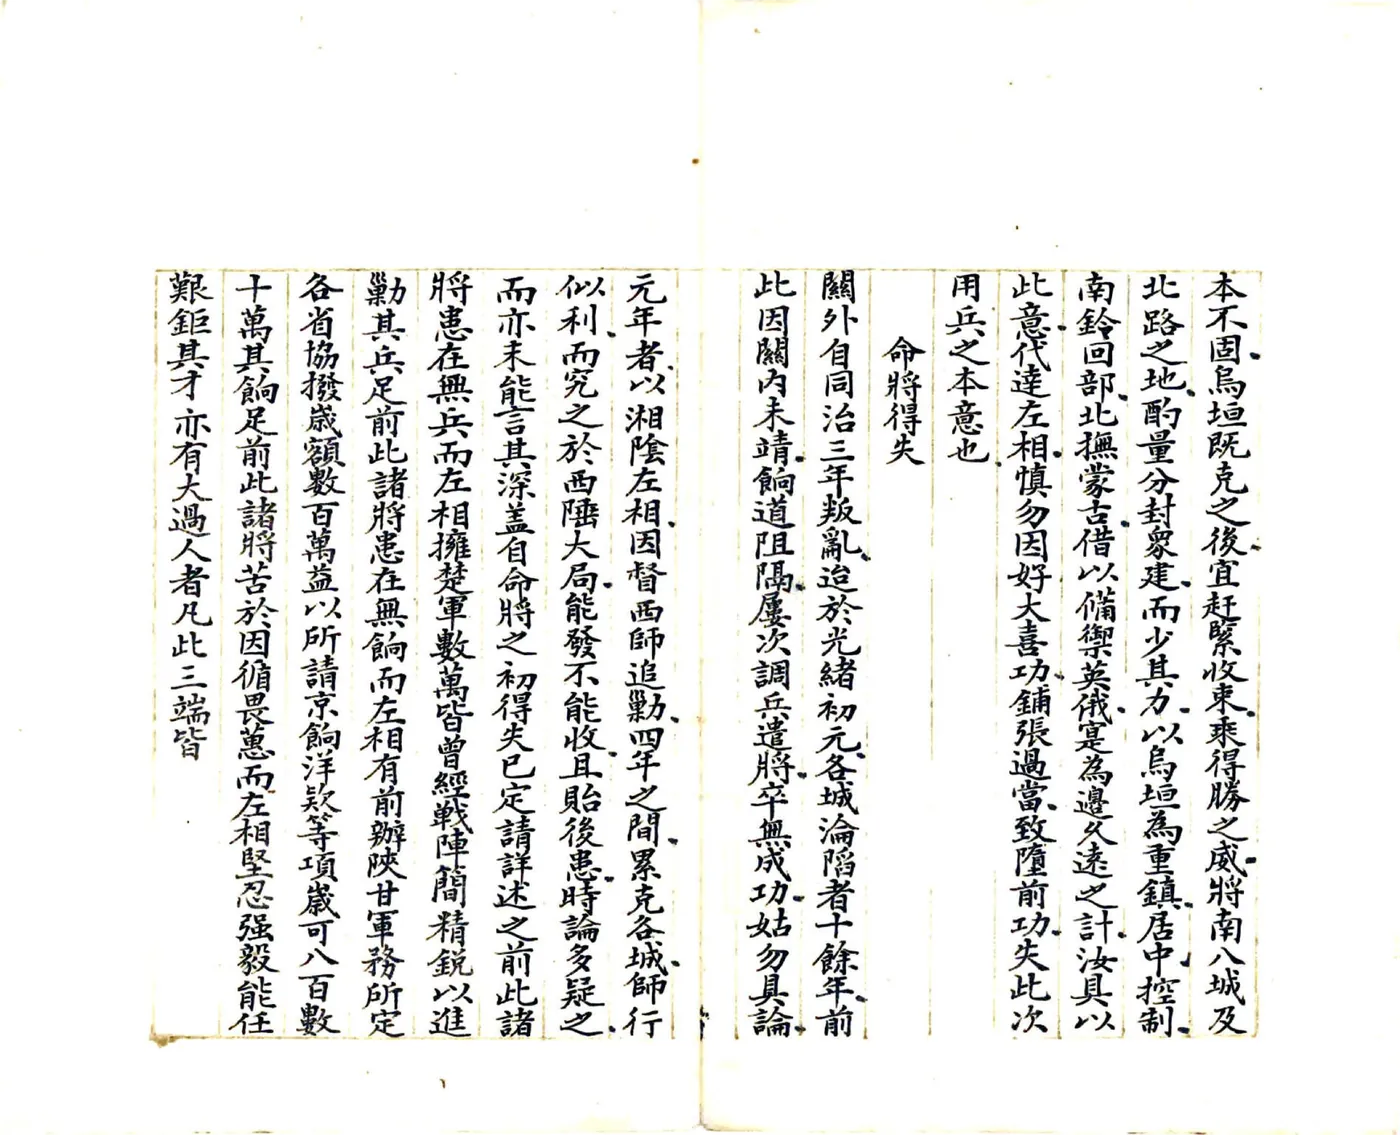 本不固烏垣既克之後宜赶緊收束乘得勝之威將南八城及
北路之地酌量分封衆建而少其力以烏垣為重鎮居中控制
南鈐回部北撫蒙古借以備禦英俄寔為邊久遠之計汝具以
此意代達左相慎勿因好大喜功鋪張過當致隳前功失此次
用兵之本意也
命將得失
關外自同治三年叛亂迨於光緒初元各城淪陷者十餘年前
此因關內未靖餉道阻隔屢次調兵遣將卒無成功姑勿具論
元年者以湘陰左相因督西師追勦四年之間累克各城師行
似利而究之於西陲大局能發不能收且貽後患時論多疑之
而亦未能言其深盖自命將之初得失已定請詳述之前此諸
將患在無兵而左相擁楚軍數萬皆曾經戰陣簡精銳以進
勦其兵足前此諸將患在無餉而左相有前辦陝甘軍務所定
各省協撥歲額數百萬益以所請京餉洋欵等項歲可八百數
十萬其餉足前此諸將苦於因循畏葸而左相堅忍强毅能任
艱鉅其才亦有大過人者凡此三端皆